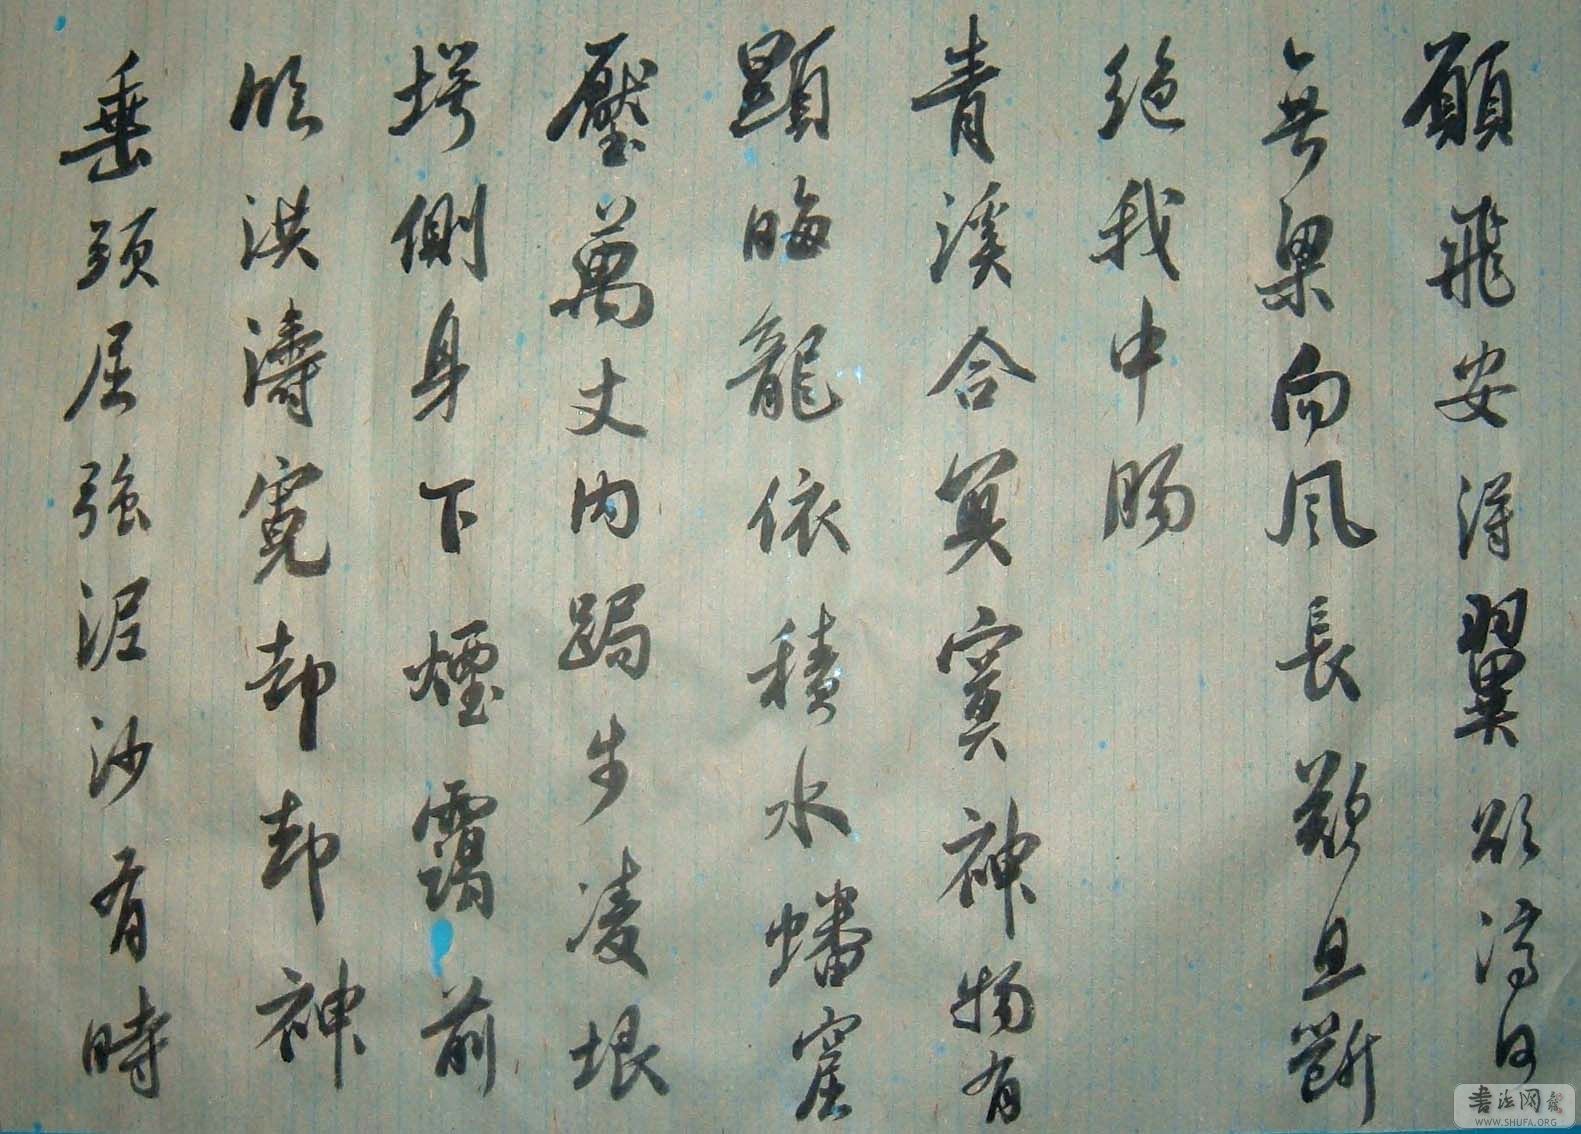 願飛安得翼欲濟河
無梁向風長歎且斷
絕我中腸
青溪合冥寞神物有
顯晦龍依積水蟠窟
壓萬丈內跼步凌垠
堮側身下煙靄前
臨洪濤寬卻却神
垂頭屈強泥沙有時
書法网
WWW.SHUFA.ORG